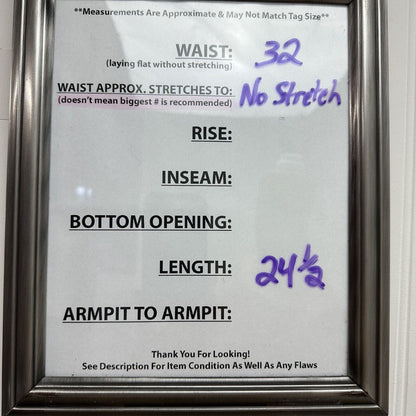 **Measurements Are Approximate & May Not Match Tag Size**
WAIST: 32
(laying flat without stretching)
WAIST APPROX. STRETCHES TO: No Stretch
(doesn't mean biggest # is recommended)
RISE:
INSEAM:
BOTTOM OPENING:
LENGTH: 24 1/2
ARMPIT TO ARMPIT:
Thank You For Looking!
See Description For Item Condition As Well As Any Flaws